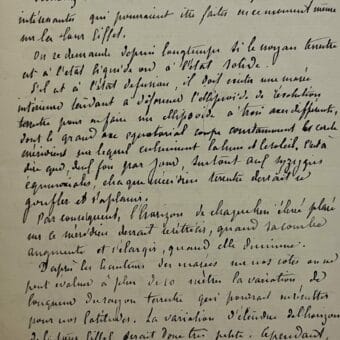 intéressantes qui pourraient être faites en ce moment même
sur la tour Eiffel.
On se demande depuis longtemps si le noyau terrestre
est à l'état liquide ou à l'état solide.
S'il est à l'état de fusion, il doit exister une marée
intérieure tendant à déformer l'ellipsoïde de révolution
terrestre pour en faire un ellipsoïde à trois axes différents,
dont le grand axe équatorial coupe constamment le
méridien sur lequel culminent la lune et le soleil, c'est à
dire que, deux fois par jour, surtout aux syzygies
équinoxiales, chaque méridien terrestre devrait se
gonfler et s'aplanir.
Par conséquent, l'horizon de chaque lieu élevé placé
sur ce méridien devrait se rétrécir, quand sa courbe
augmente et s'élargir, quand elle diminue.
D'après les hauteurs des marées sur nos côtes on ne
peut évaluer à plus de 10 mètres la variation de
longueur du rayon terrestre qui pourrait résulter
pour nos latitudes. La variation d'étendue de l'horizon
de la tour Eiffel serait donc très petite. Cependant,